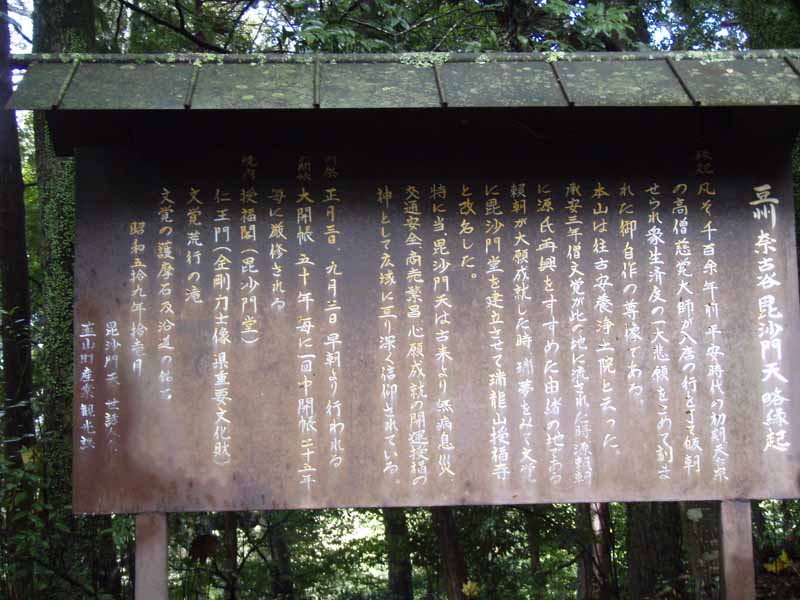 豆州 奈古谷 毘沙門天 略縁起
縁起 凡そ千百余年前平安時代の初期天台宗
の高僧慈覚大師が入唐の行をすませ帰朝
せられ衆生済度の一大悲願をこめて刻ま
れた御自作の尊像である
本山は往古安養浄土院と云った。
承安三年僧文覚が此の地に流された時源頼朝
に源氏再興をすすめた由緒の地である
頼朝が大願成就した時 瑞夢をみて文覚
に毘沙門堂を建立させて瑞龍山授福寺
と改名した。
特に当毘沙門天は古来より無病息災、
交通安全、商売繁昌 心願成就の開運授福の
神として広域に亘り深く信仰されている。
例祭 正月三日、九月三日 早朝より行われる
大開帳 五十年毎に一回 中開帳 二十五年
毎に厳修される
境内 授福閣(毘沙門堂)
仁王門(金剛力士像 県重要文化財)
文覚荒行の滝
文覚の護摩石及沿道の銘石
昭和五拾九年拾壱月
毘沙門天 世話人
韮山町産業観光課